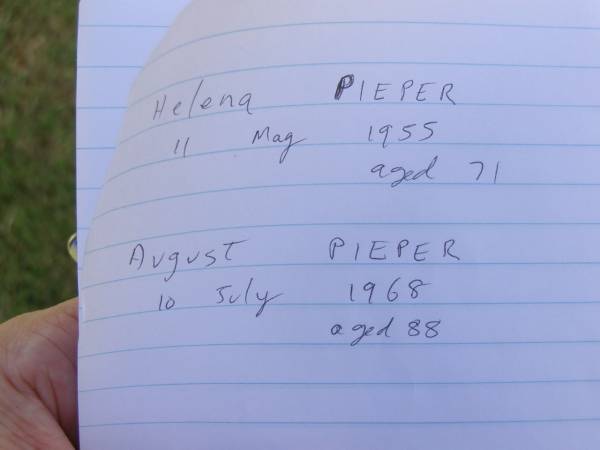 Helena PIEPER
11 May 1955
aged 71
August PIEPER
10 July 1968
aged 88